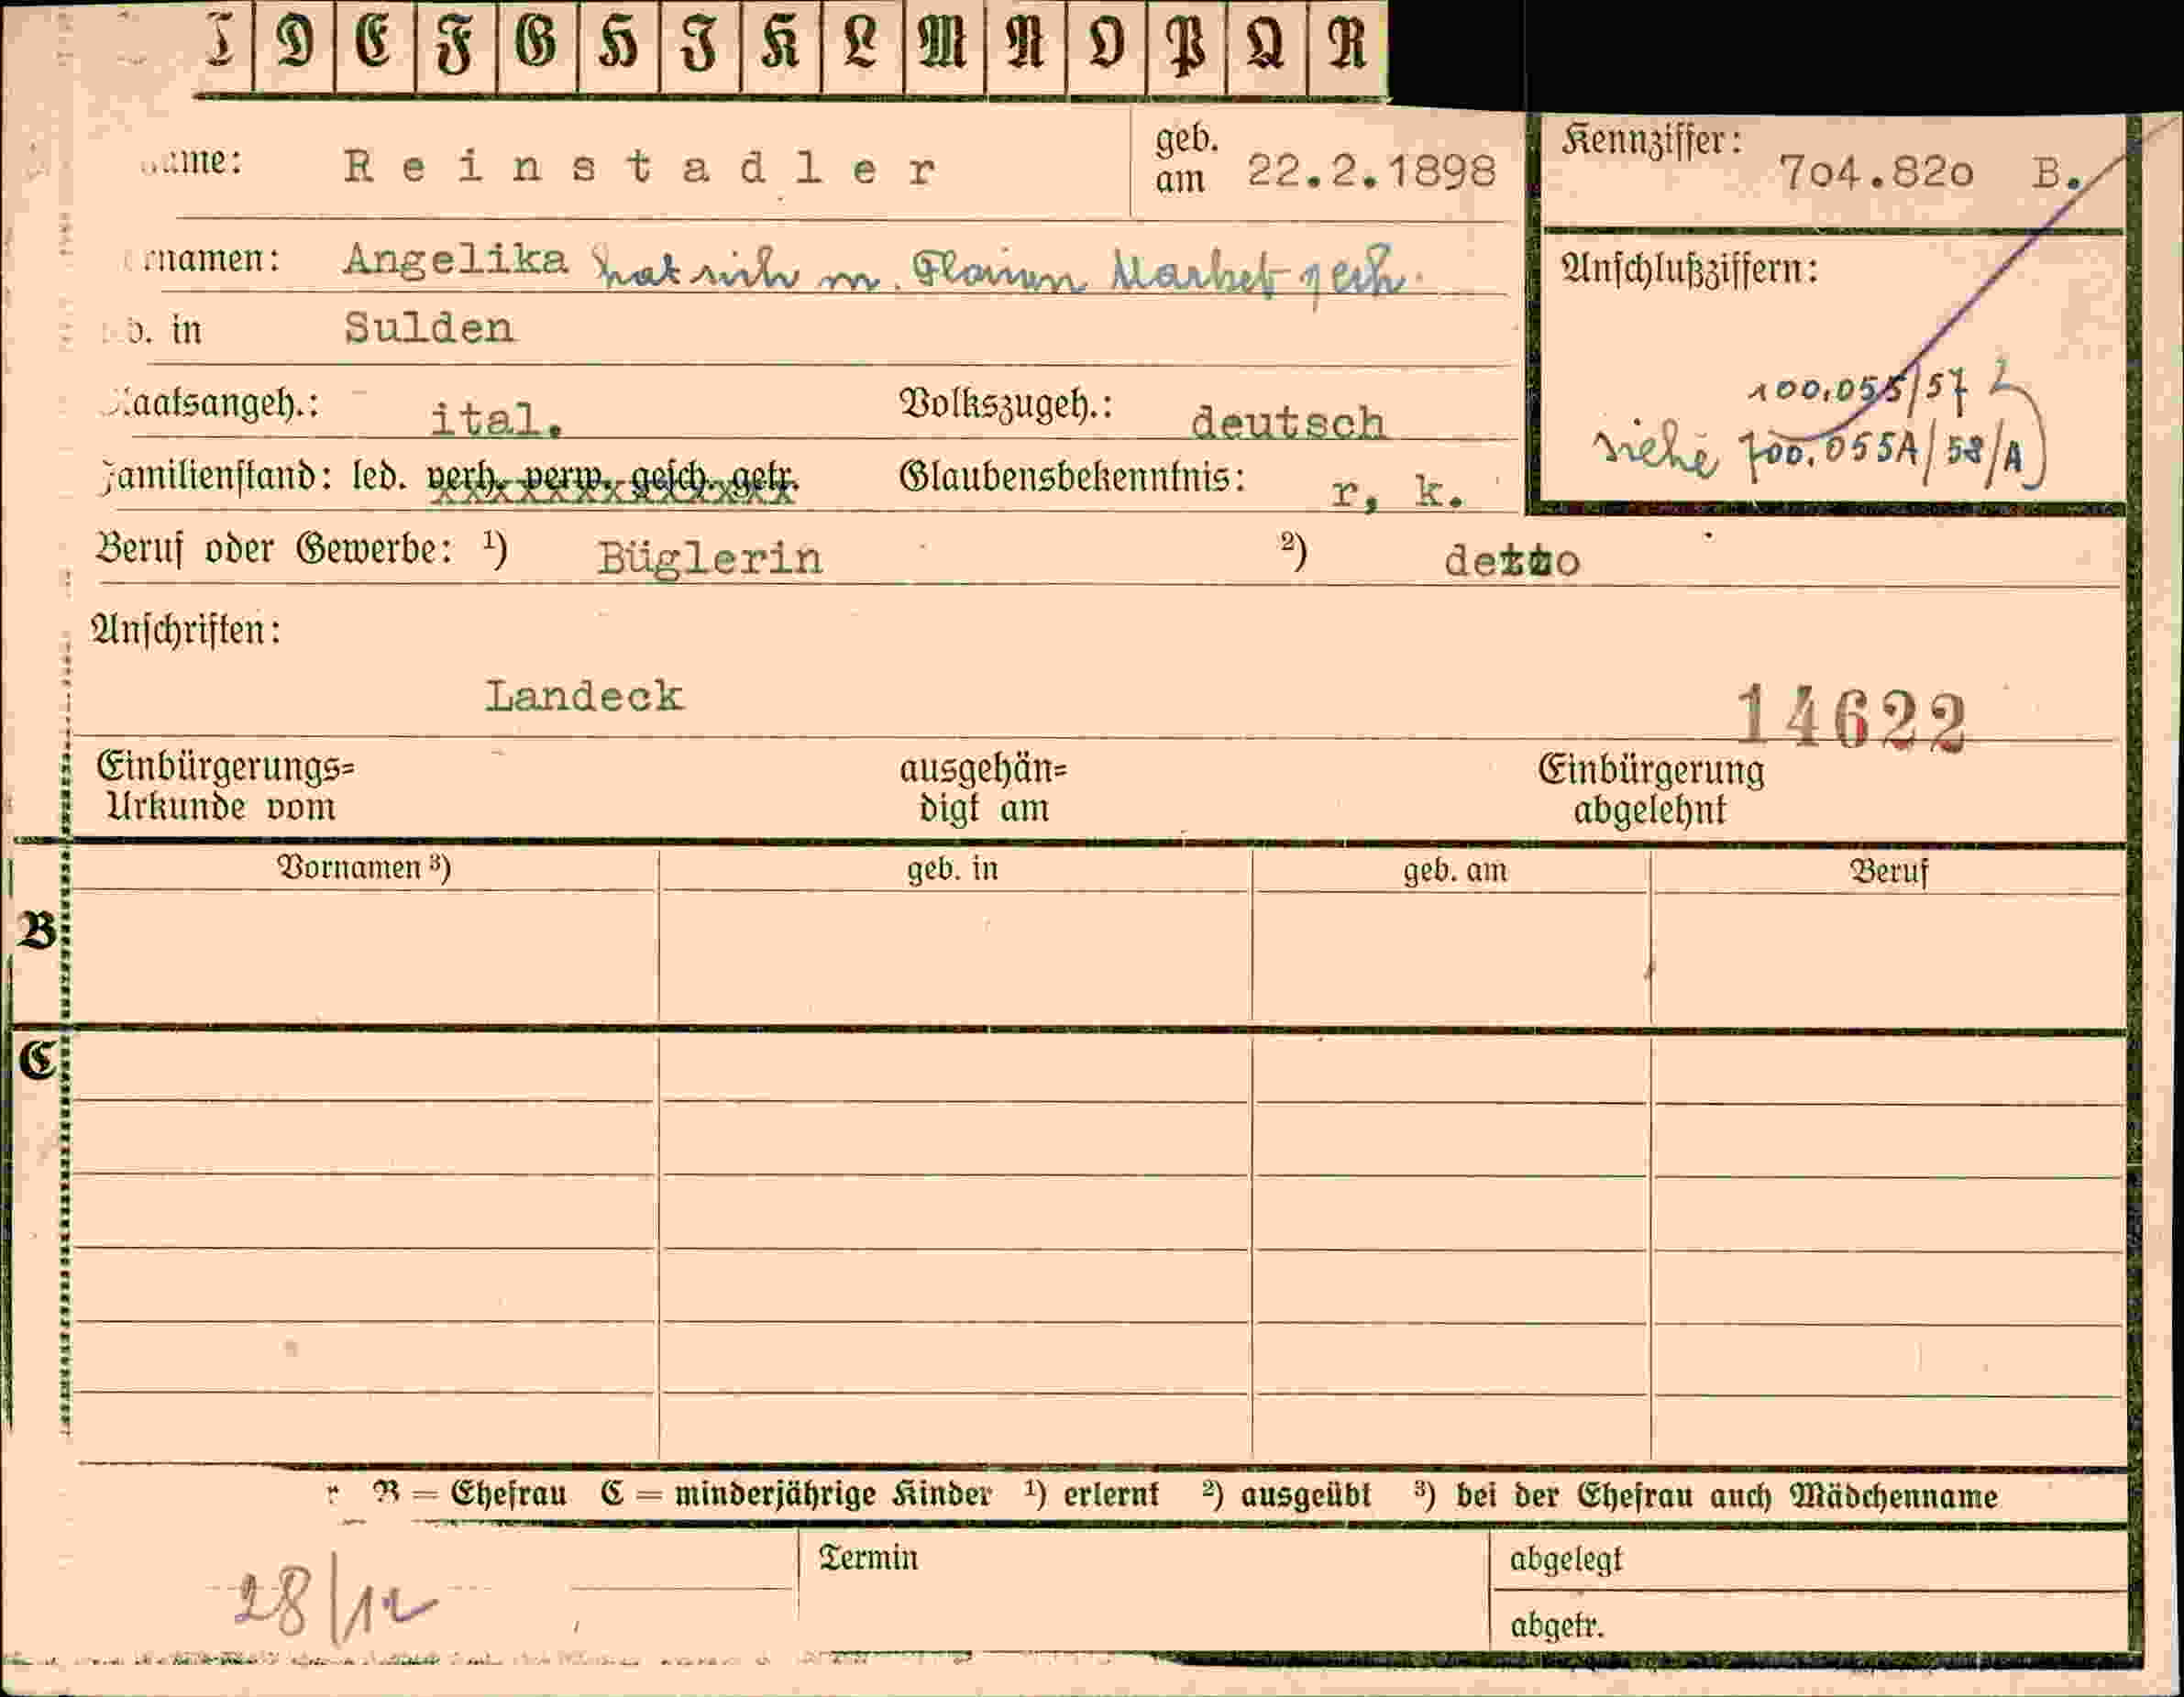 D E F G H J K L M N O P Q R
ame: Reinstadler geb. am 22.2.1898 Kennziffer: 704.820 B.
rnamen: Angelika hat sich m. Florian Market
Anschlußziffern:
b. in Sulden
100.055/57
siehe 700.055A/58/A
taatsangeh.: ital. Volkszugeh.: deutsch
Familienstand: led. verh. verw. gesch. getr. Glaubensbekenntnis: r, k.
Beruf oder Gewerbe: ¹) Büglerin ²) detto
Anschriften:
Landeck
14622
Einbürgerungs= ausgehän= Einbürgerung
Urkunde vom digt am abgelehnt
Vornamen ³) geb. in geb. am Beruf
B
C
r B = Ehefrau C = minderjährige Kinder ¹) erlernt ²) ausgeübt ³) bei der Ehefrau auch Mädchenname
Termin abgelegt
28/12
abgetr.